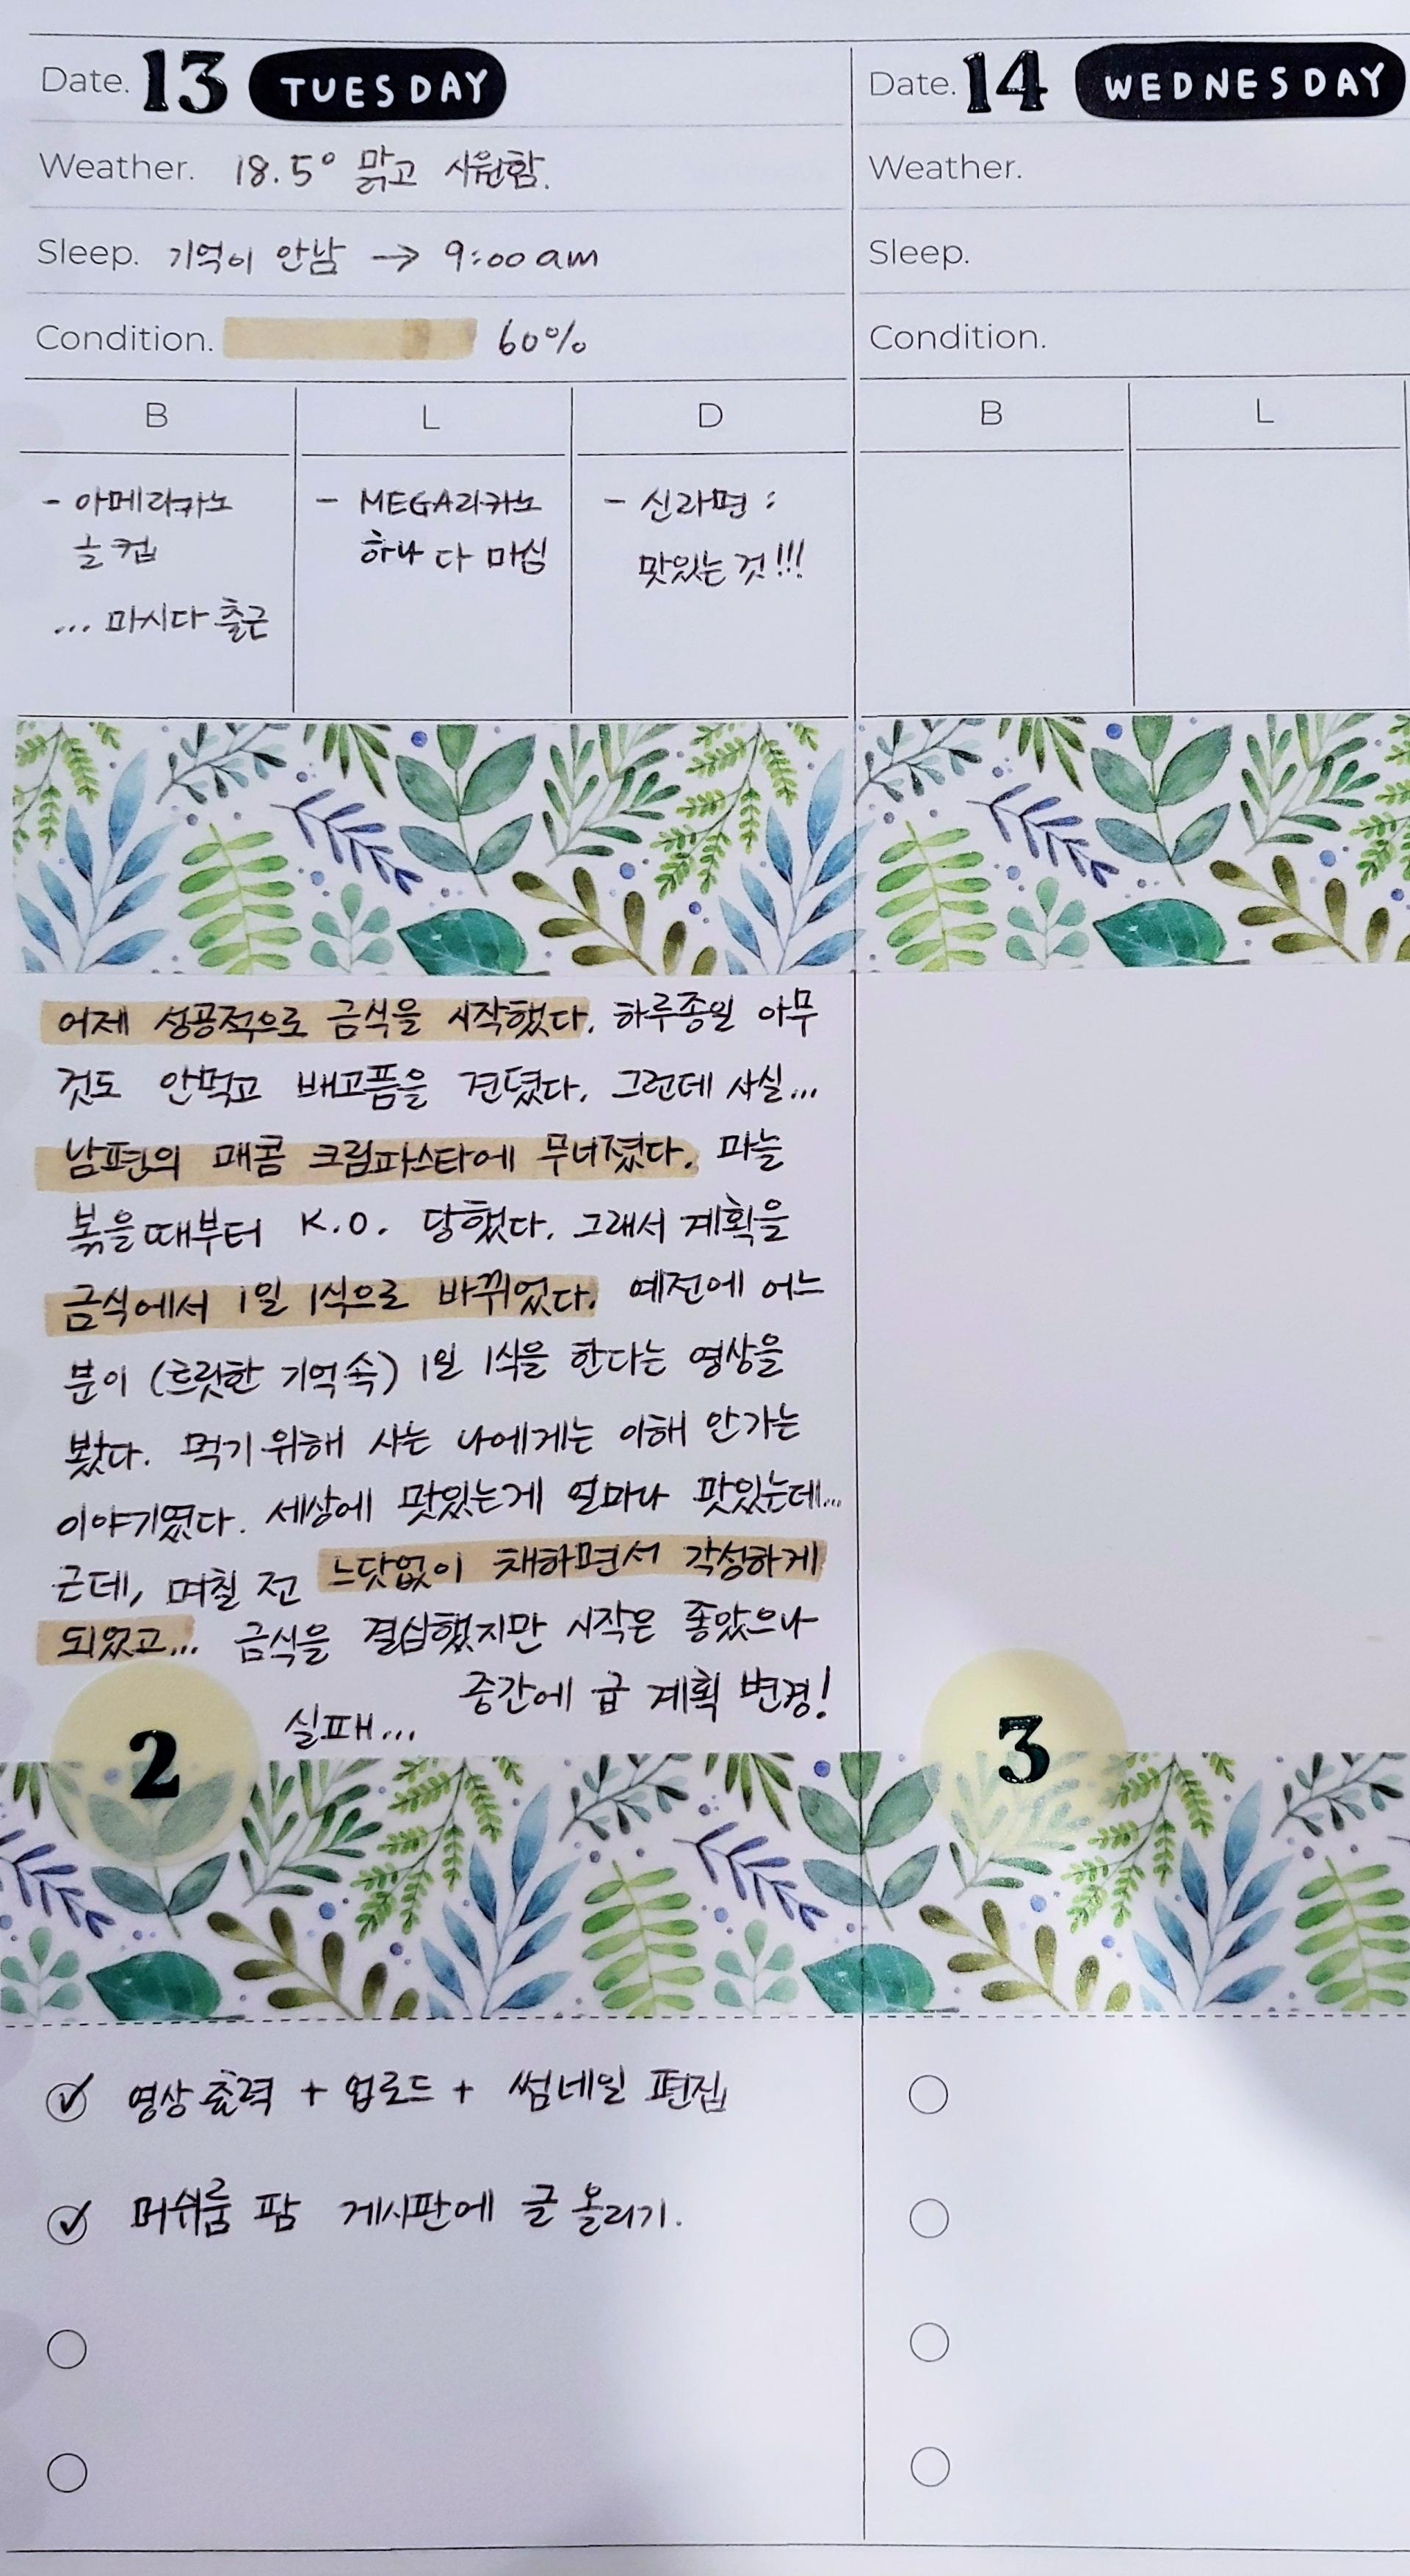 Date. 13 TUESDAY
Weather. 18.5° 맑고 시원함.
Sleep. 기억이 안남 → 9:00 am
Condition. 60%
B
L
D
- 아메리카노
... 마시다 출근
- MEGA리카노
하나 다 마심
- 신라면 :
맛있는 것!!!
어제 성공적으로 금식을 시작했다. 하루종일 아무
것도 안먹고 배고픔을 견뎠다. 그런데 사실...
남편의 매콤 크림파스타에 무너졌다. 마늘
볶을때부터 K.O. 당했다. 그래서 계획을
금식에서 1일 1식으로 바뀌었다. 예전에 어느
분이 (흐릿한 기억 속) 1일 1식을 한다는 영상을
봤다. 먹기 위해 사는 나에게는 이해 안가는
이야기였다. 세상에 맛있는게 얼마나 맛있는데...
근데, 며칠 전 느닷없이 채하면서 각성하게
되었고... 금식을 결심했지만 시작은 좋았으나
중간에 급 계획 변경!
실패...
2
영상 출력 + 업로드 + 썸네일 편집
머쉬룸 팜 게시판에 글 올리기.
Date. 14 WEDNESDAY
Weather.
Sleep.
Condition.
B
L
3